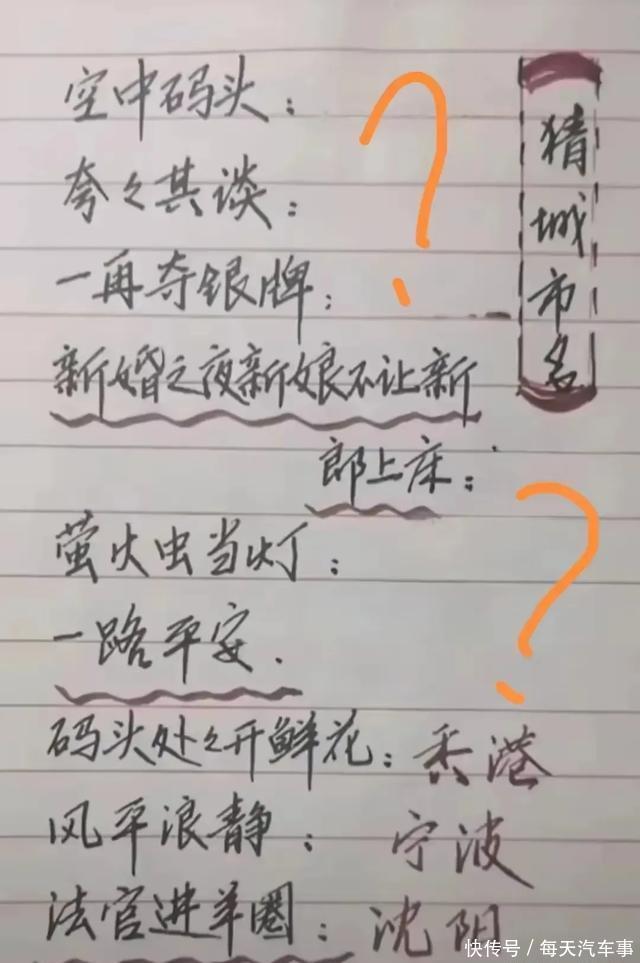 猜城市名
空中码头：
夸々其谈：
一再夺银牌：
新婚之夜新娘不让新
郎上床：
萤火虫当灯：
一路平安.
码头处々开鲜花：香港
风平浪静：宁波
法官进羊圈：沈阴
快传号／每天汽车事